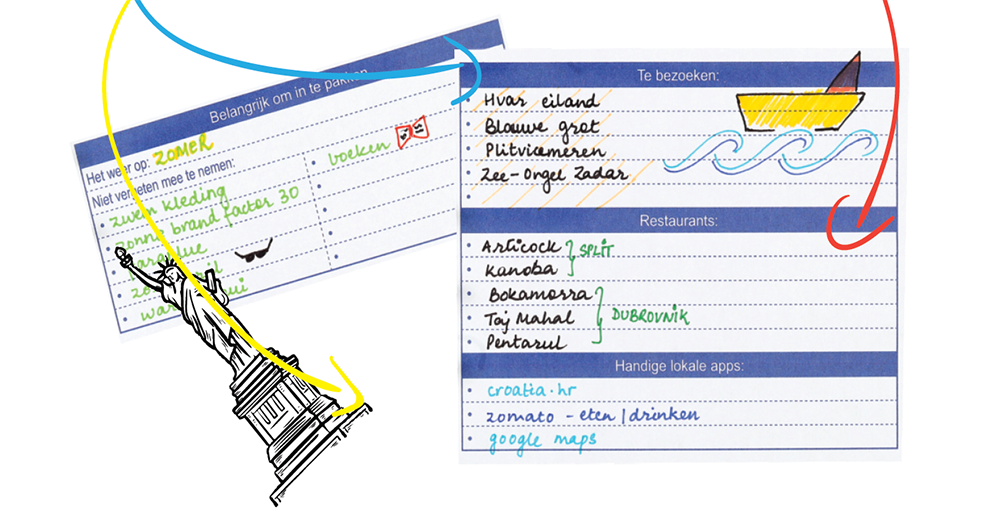 Belangrijk om in te pakken
Het weer op: ZOMER
Niet vergeten mee te nemen:
zwem kleding
zonne brand factor 30
boeken
Te bezoeken:
Hvar eiland
Blauwe grot
Plitvicemeren
Zee-Orgel Zadar
Restaurants:
Articock
Kanoba
SPLIT
Bokamorra
Taj Mahal
Pentarul
DUBROVNIK
Handige lokale apps:
croatia.hr
zomato - eten | drinken
google maps